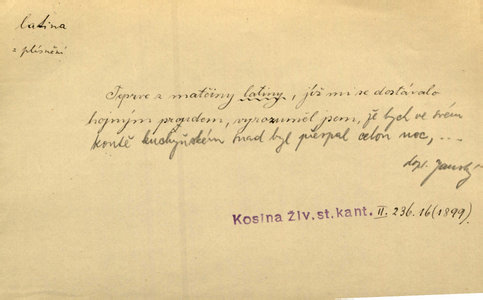 latina
z plísnění
Teprve z matčiny latiny, jíž mi se dostávalo
hojným proudem, vyrozuměl jsem, že bych ve svém
koutě kuchyňském snad byl přespal celou noc, ...
dopl. Janský
Kosina Živ. st. kant. II. 236. 16 (1899)